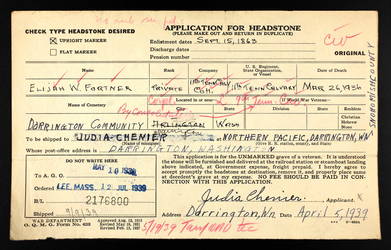 CHECK TYPE HEADSTONE DESIRED
UPRIGHT MARKER
FLAT MARKER
APPLICATION FOR HEADSTONE
(PLEASE MAKE OUT AND RETURN IN DUPLICATE)
Enlistment dates Sept. 15, 1863
Discharge dates
Pension number
CW
ORIGINAL
Name
Rank
Company
U. S. Regiment, State Organization, or Vessel
Date of Death
Elijah W. Fortner
Private
11th Tenn Calvary
Mar 26 1936
Name of Cemetery
Located in or near
Corpl
Darrington Community
Arlington
Wash
SNOHOMISH COUNTY
To be shipped to JUDIA CHENIER
NORTHERN PACIFIC, DARRINGTON, WN
Whose post-office address is DARRINGTON, WASHINGTON
DO NOT WRITE HERE
MAY 10 1939
To A. G. O.
Ordered
LEE, MASS. 12 JUL 1939
B/L 2176800
Shipped
This application is for the UNMARKED grave of a veteran. It is understood
the stone will be furnished and delivered at the railroad station or steamboat
above indicated, at Government expense, freight prepaid. I hereby agree to
promptly accept the headstone at destination, remove it, and properly place same
at decedent's grave at my expense. NO FEE SHOULD BE PAID IN CONNECTION WITH THIS APPLICATION.
Judia Chenier, Applicant
Darrington, Wn April 5, 1939
WAR DEPARTMENT
O. Q. M. G. Form No. 623
5/19/39